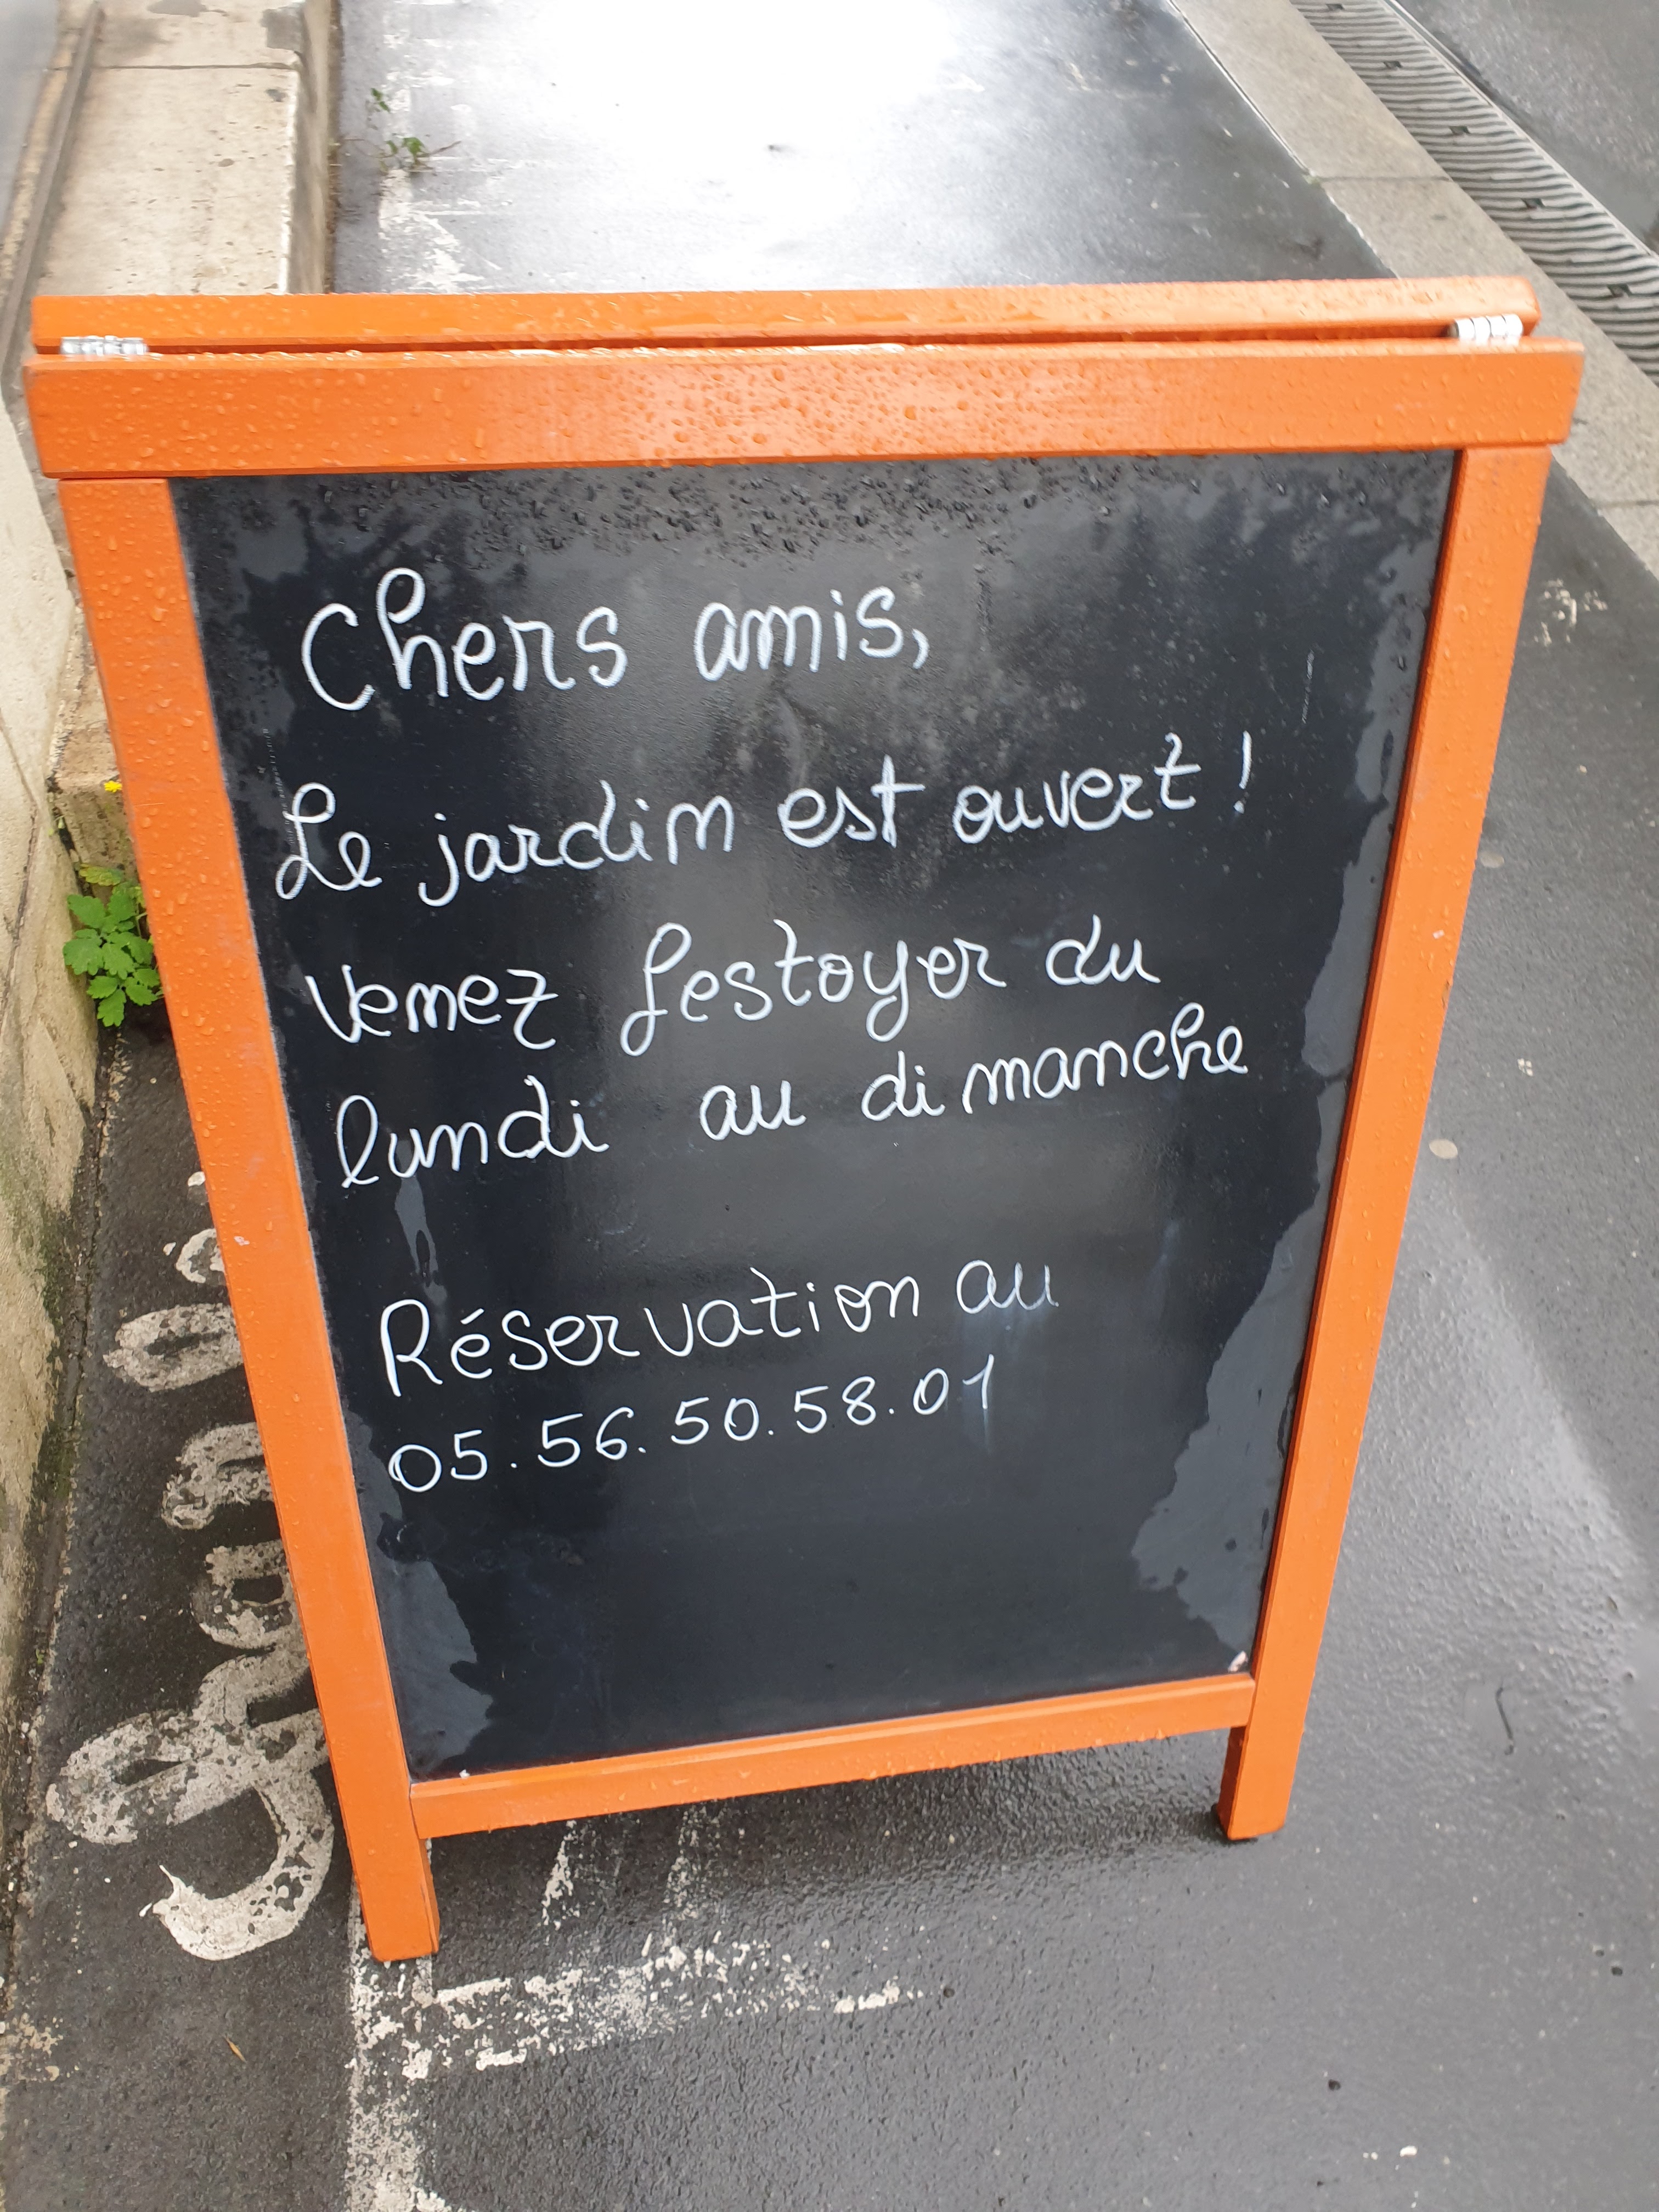 Chers amis,
Le jardin est ouvert !
venez festoyer du
lundi au dimanche
Réservation au
05.56.50.58.01